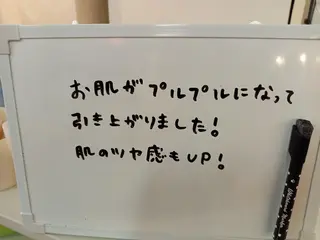 お肌がプルプルになって
引き上がりました!
肌のツヤ感もUP!